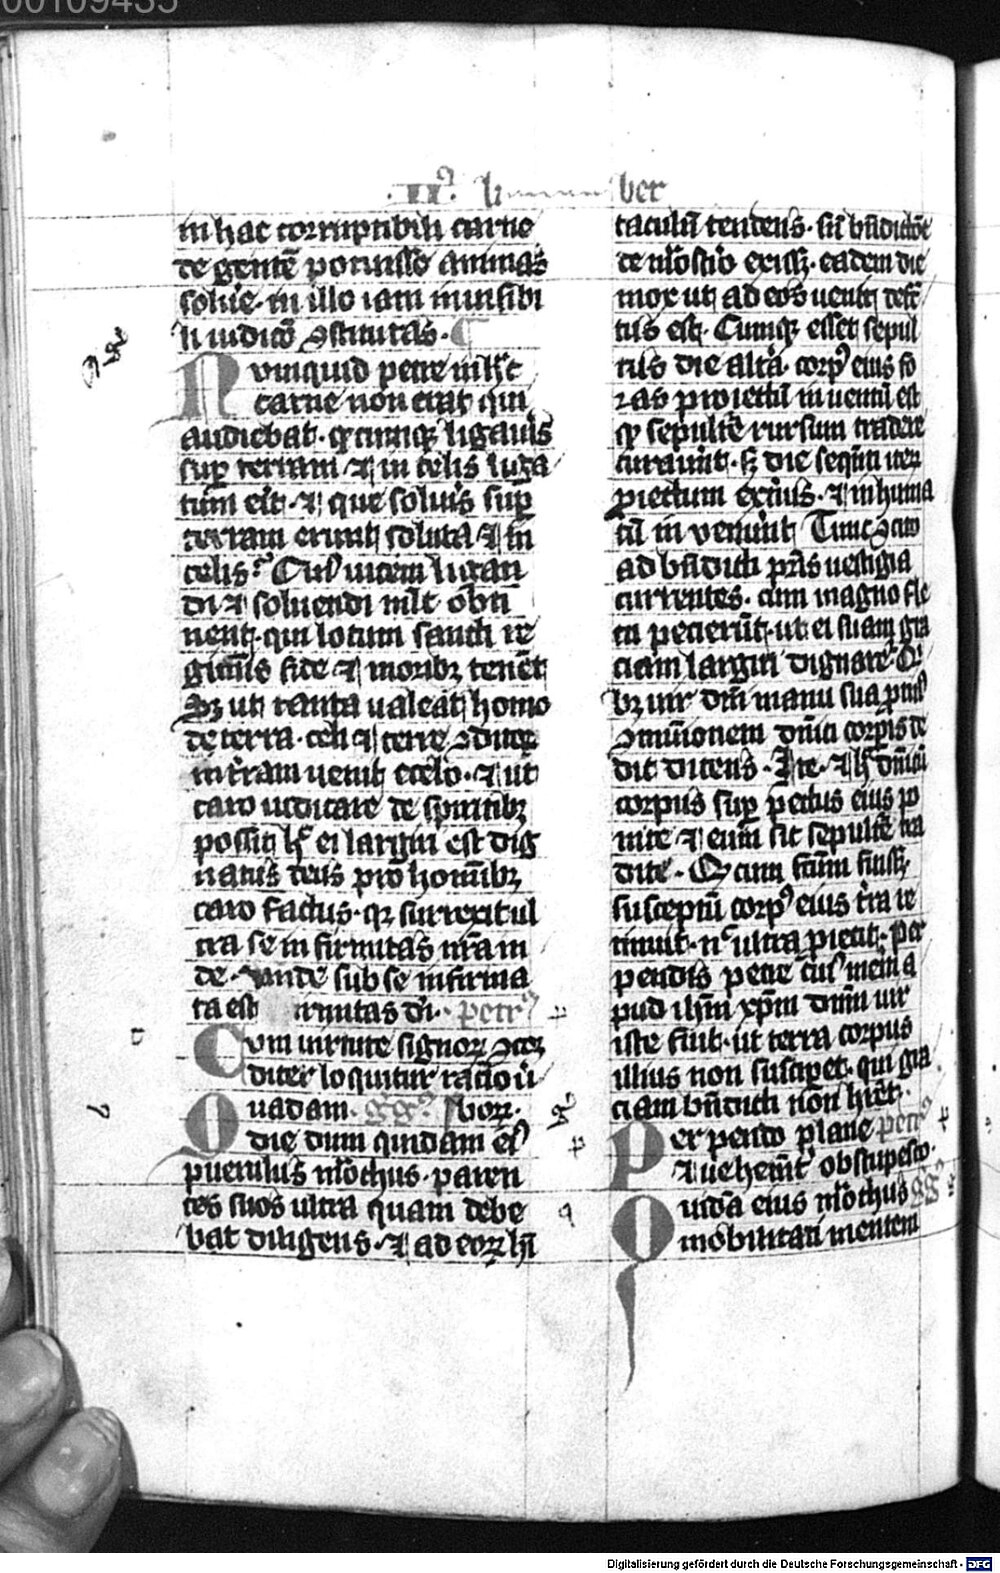 00109435
.IIꝰ. li ber
in hac corruptibili carne
degentē potuisse animas
soluē. in illo iam inuisibi
li iudicō ꝯstitutas.
Numquid petre in hͨ
carne non erat qui
audiebat. qͨcumqꝫ ligauīs
suꝑ terram ⁊ in celis liga
tum erit. ⁊ que soluīs suꝑ
terram erunt soluta ⁊ in
celis. Cuiꝰ uicem ligan
di ⁊ soluendi nūc obti
nent. qui locum sancti re
giminis fide ⁊ moribꝫ tenēt
Sꝫ ut tanta ualeat homo
de terra. celi ⁊ terre ꝯditor
in t̄ram uenit e celo. ⁊ ut
caro iudicare de spiritibꝫ
possit hͨ ei largiri est dig
natus deus pro hominibꝫ
caro factus. qꝫ surrexit ul
tra se infirmitas nr̄a in
de. unde sub se infirma
ta est firmitas dī. petrꝰ
Cum uirtute signoꝝ ꝯcor
diter loquitur ratio ū
Quadam. ggꝰ. uboꝝ.
die dum quidam eiꝰ
puerulus mōchus. paren
tes suos ultra quam debe
bat diligens. ⁊ ad eoꝝ hī
taculū tendens. sī bn̄dictōe
de mōsterio exisꝫ. eadem die
mox ut ad eos uenit defc̄
tus est. Cumqꝫ esset sepul
tus die altā. corpꝰ eius fo
ras proiectū inuentū est
qꝫ sepultē rursum tradere
curauerūt. sꝫ die seqūti iteꝝ
ꝓiectum exteriꝰ. ⁊ inhuma
tū inuenerūt Tunc ꝯcito
ad bn̄dicti pr̄is uestigia
currentes. cum magno fle
tu pecierūt. ut ei suam gra
ciam largiri dignaret. Qi
bꝫ uir dn̄i manu sua ꝓtinꝰ
ꝯmunionem dn̄ici corpis de
dit dicens. Ite. ⁊ hͨ dn̄icū
corpus suꝑ pectus eius po
nite ⁊ eum sic sepultē tra
dite. Qͨ cum factum fuissꝫ.
susceptū corpꝰ eius t̄ra re
tinuit. nͨ ultra ꝓiecit. Per
pendis petre cuiꝰ meriti a
pud ihm̄ xp̄m dn̄m uir
iste fuit. ut terra corpus
illius non susciperet. qui gra
ciam bn̄dicti non hret.
Perpendo plane petrꝰ
⁊ uehemēt obstupesco.
Quidā eius mōchus ggꝰ
mobilitati mentem
Digitalisierung gefördert durch die Deutsche Forschungsgemeinschaft - DFG